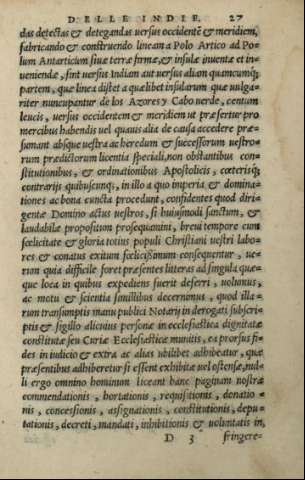 DELLE INDIE. 27
das detectas & detegandas uersus occidentē & meridiem,
fabricando & construendo lineam a Polo Artico ad Po-
lum Antarticum siue terræ firmæ, & insulæ inuentæ et in-
ueniendæ, sint uersus Indiam aut uersus aliam quamcumq;
partem, que linea distet a qualibet insularum quæ uulga-
riter nuncupantur de los Azores y Cabo uerde, centum
leucis, uersus occidentem & meridiem ut præfertur pro
mercibus habendis uel quauis alia de causa accedere præ-
sumant absque uestra ac heredum & successorum uestro-
rum prædictorum licentia speciali, non obstantibus con-
stitutionibus, & ordinationibus Apostolicis, cæterisq;
contrarijs quibuscunq;, in illo a quo imperia & domina-
tiones ac bona cuncta procedunt, confidentes quod diri-
gente Domino actus uestros, si huiusmodi sanctum, &
laudabile propositum prosequamini, breui tempore cum
fœlicitate & gloria totius populi Christiani uestri labo-
res & conatus exitum fœlicissimum consequentur, ue-
rum quia difficile foret præsentes litteras ad singula quæ-
que loca in quibus expediens fuerit deferri, uolumus,
ac motu & scientia similibus decernimus, quod illa-
rum transumptis manu publici Notarij in derogati subscri-
ptis & sigillo alicuius personæ in ecclesiastica dignitate
constitutæ seu Curiæ Ecclesiasticæ munitis, ea prorsus fi-
des in iudicio & extra ac alias ubilibet adhibeatur, quæ
præsentibus adhiberetur si essent exhibitæ uel ostensæ, nul-
li ergo omnino hominum liceant hanc paginam nostræ
commendationis, hortationis, requisitionis, donatio-
nis, concessionis, assignationis, constitutionis, depu-
tationis, decreti, mandati, inhibitionis & uoluntatis in,
D 3 fringere-